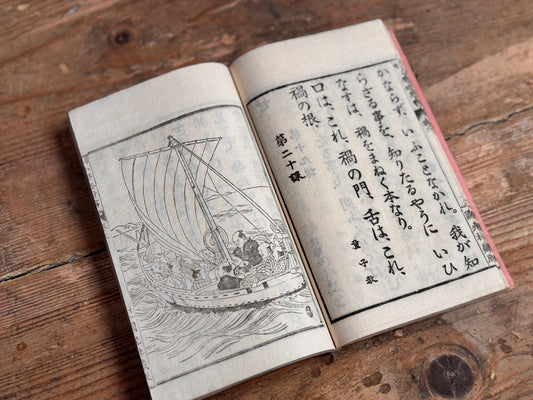 かならず、いふことなかれ。我が知
らざる事を、知りたるやうに いひ
なすは、禍をまねく本なり。
口は、これ、禍の門、舌は、これ、
禍の根、 童子教
第二十課